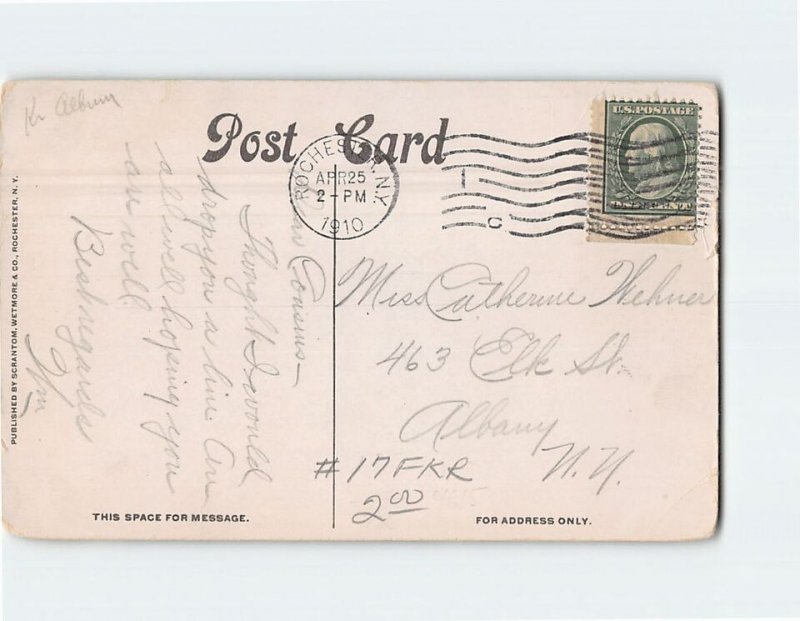 Kr Album
Post Card
ROCHESTER, N.Y.
APR 25
2 - PM
1910
C
U.S. POSTAGE
PUBLISHED BY SCRANTOM, WETMORE & CO., ROCHESTER, N.Y.
Cousins—
Thought I would
drop you a line. Am
all well hoping you
are well
Best regards
Wm
Miss Catherine Wehner
463 Elk St.
Albany
N.Y.
#17FKR
2.00
THIS SPACE FOR MESSAGE.
FOR ADDRESS ONLY.